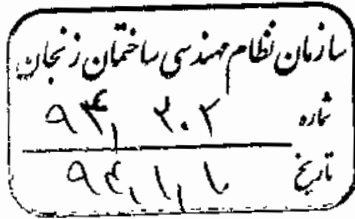 سازمان نظام مهندسی ساختمان زنجان
شماره
تاریخ